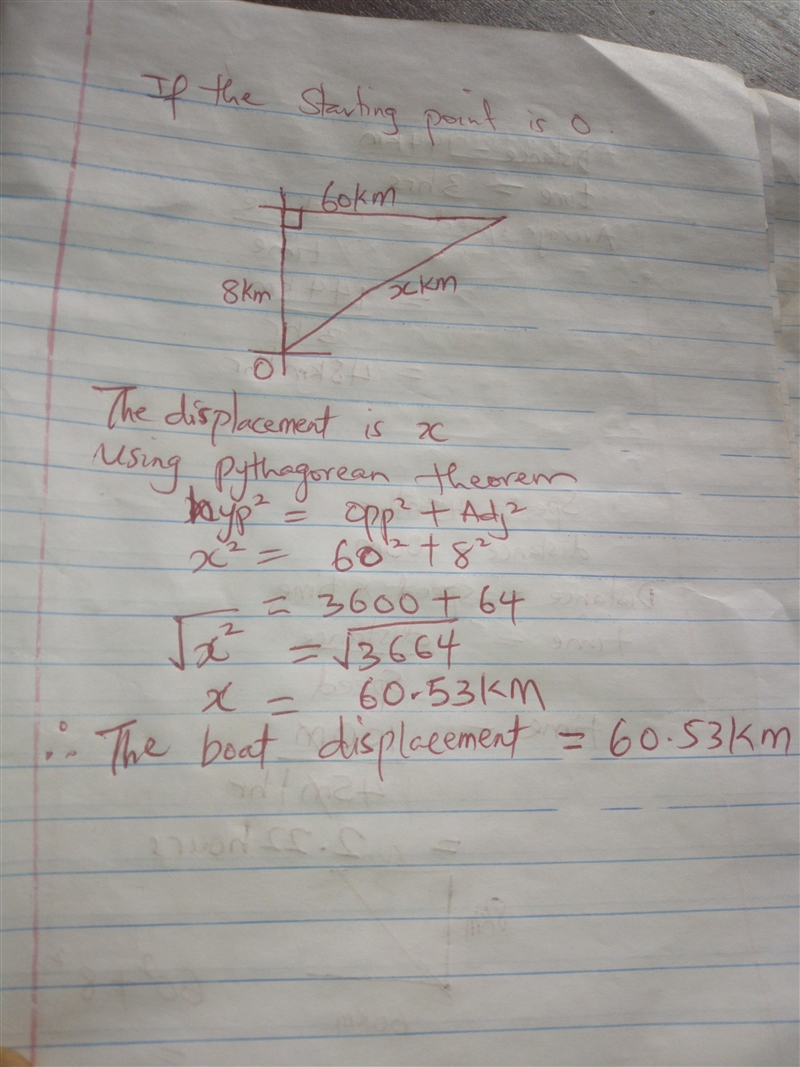 If the starting point is 0.
60km
8km
xkm
O
The displacement is x
Using pythagorean theorem
hyp² = opp² + Adj²
x² = 60² + 8²
= 3600 + 64
√x² = √3664
x = 60.53km
∴ The boat displacement = 60.53km